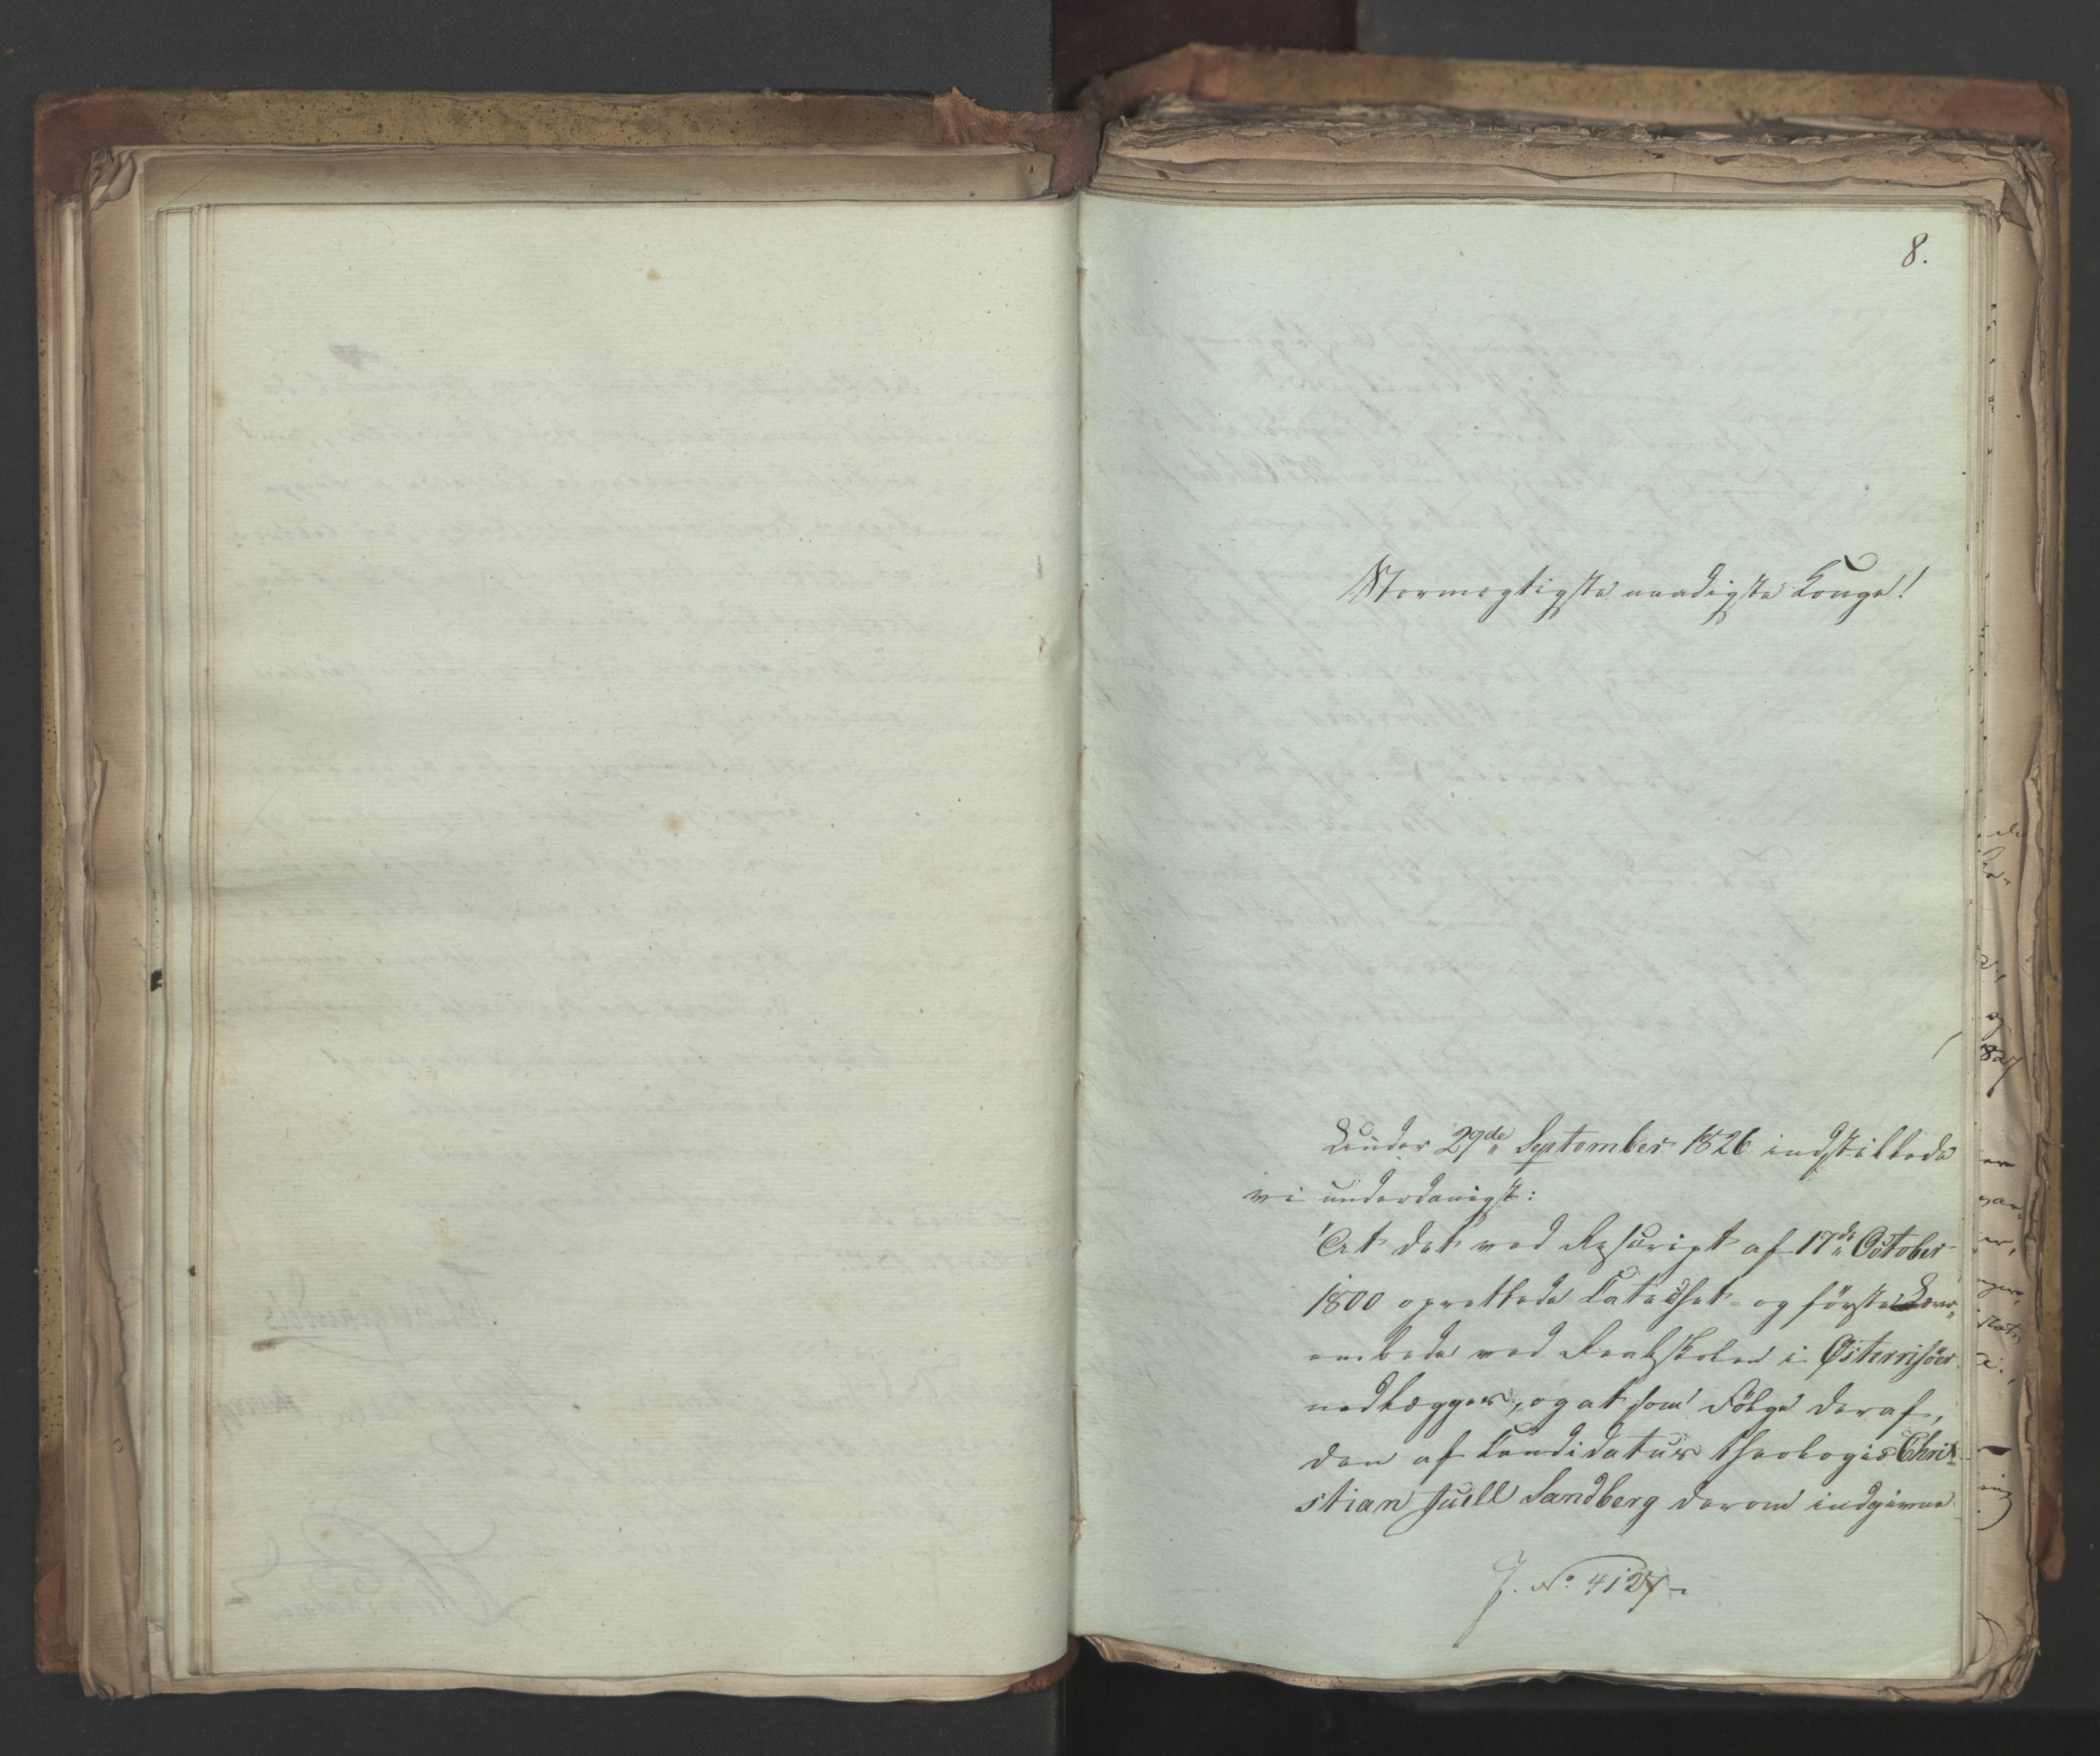 8.
Stormægtigste naadigste Konge!
Under 29de September 1826 indstillede
vi underdanigst:
"At det ved Rescript af 17de October
1800 oprettede Catechet- og første Lærer-
embede ved Realskolen i Østerrisöer
nedlægges, og at som Fölge deraf,
den af Candidatus theologiæ Chri-
stian Juell Sandberg derom indgivne
J. No. 4127